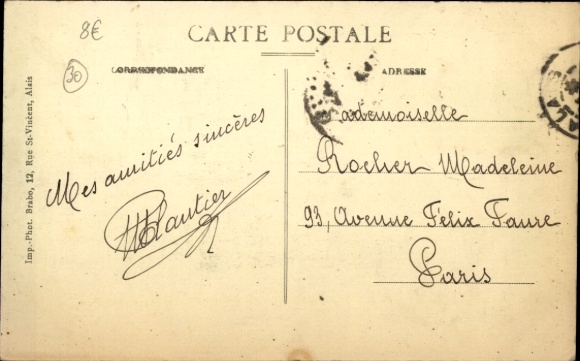 8€
CARTE POSTALE
30
CORRESPONDANCE
ADRESSE
Mes amitiés sincères
Mademoiselle
Rocher Madeleine
93, Avenue Félix Faure
Paris
Imp.-Phot. Brabo, 12, Rue St-Vincent, Alais
ALA